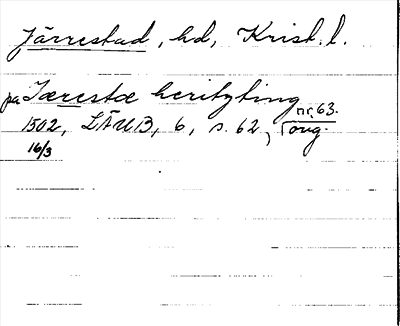 Järrestad, hd, Krist. l.
på Iærestæ heritzting
nr. 63.
1502, LÄUB, 6, s. 62, orig.
16/3